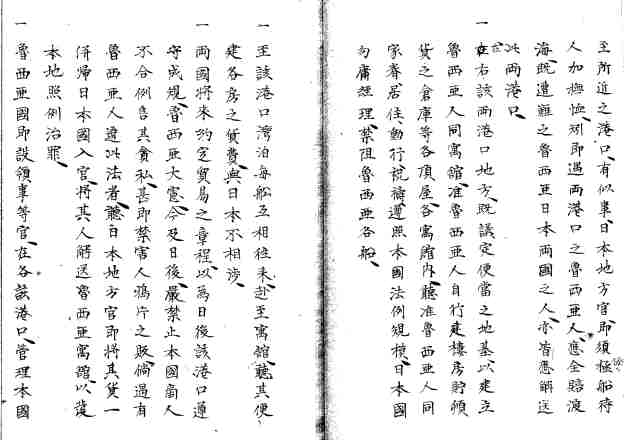 至所近之港口有似事日本地方官即須極船待
人加撫恤別即過兩港口之魯西亜人應全賠渡
海既遭難之魯西亜日本兩國之人亦皆應解送
此兩港口
一 在右該兩港口地方既議定便當之地基以建立
魯西亜人同寓舘准魯西亜人自行建樓房貯頓
貨之倉庫等各頂屋各寓館内聽准魯西亜人同
家眷居住動行説禱遵照本國法例規模日本國
勾庸經理禁阻魯西亜各舩
一 至該港口灣泊每舩互相往来赴至寓舘聽其便
建各房之貨費與日本不相渉
一 兩國將来約定貿易之章程以為日後該港口遵
守成規魯西亜大憲今及日後嚴禁止本國商人
不合例售其貪私甚即禁害人鴉片之販倘過有
魯西亜人遵此法者聽日本地方官即將其貨一
併帰日本國入官將其人解送魯西亜寓舘以復
本地照例治罪
一 魯西亜國即設領事等官在各該港口管理本國